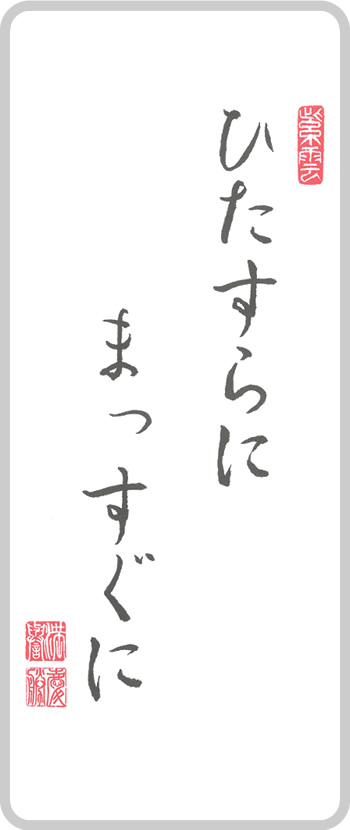 紫雲
ひたすらに
まっすぐに